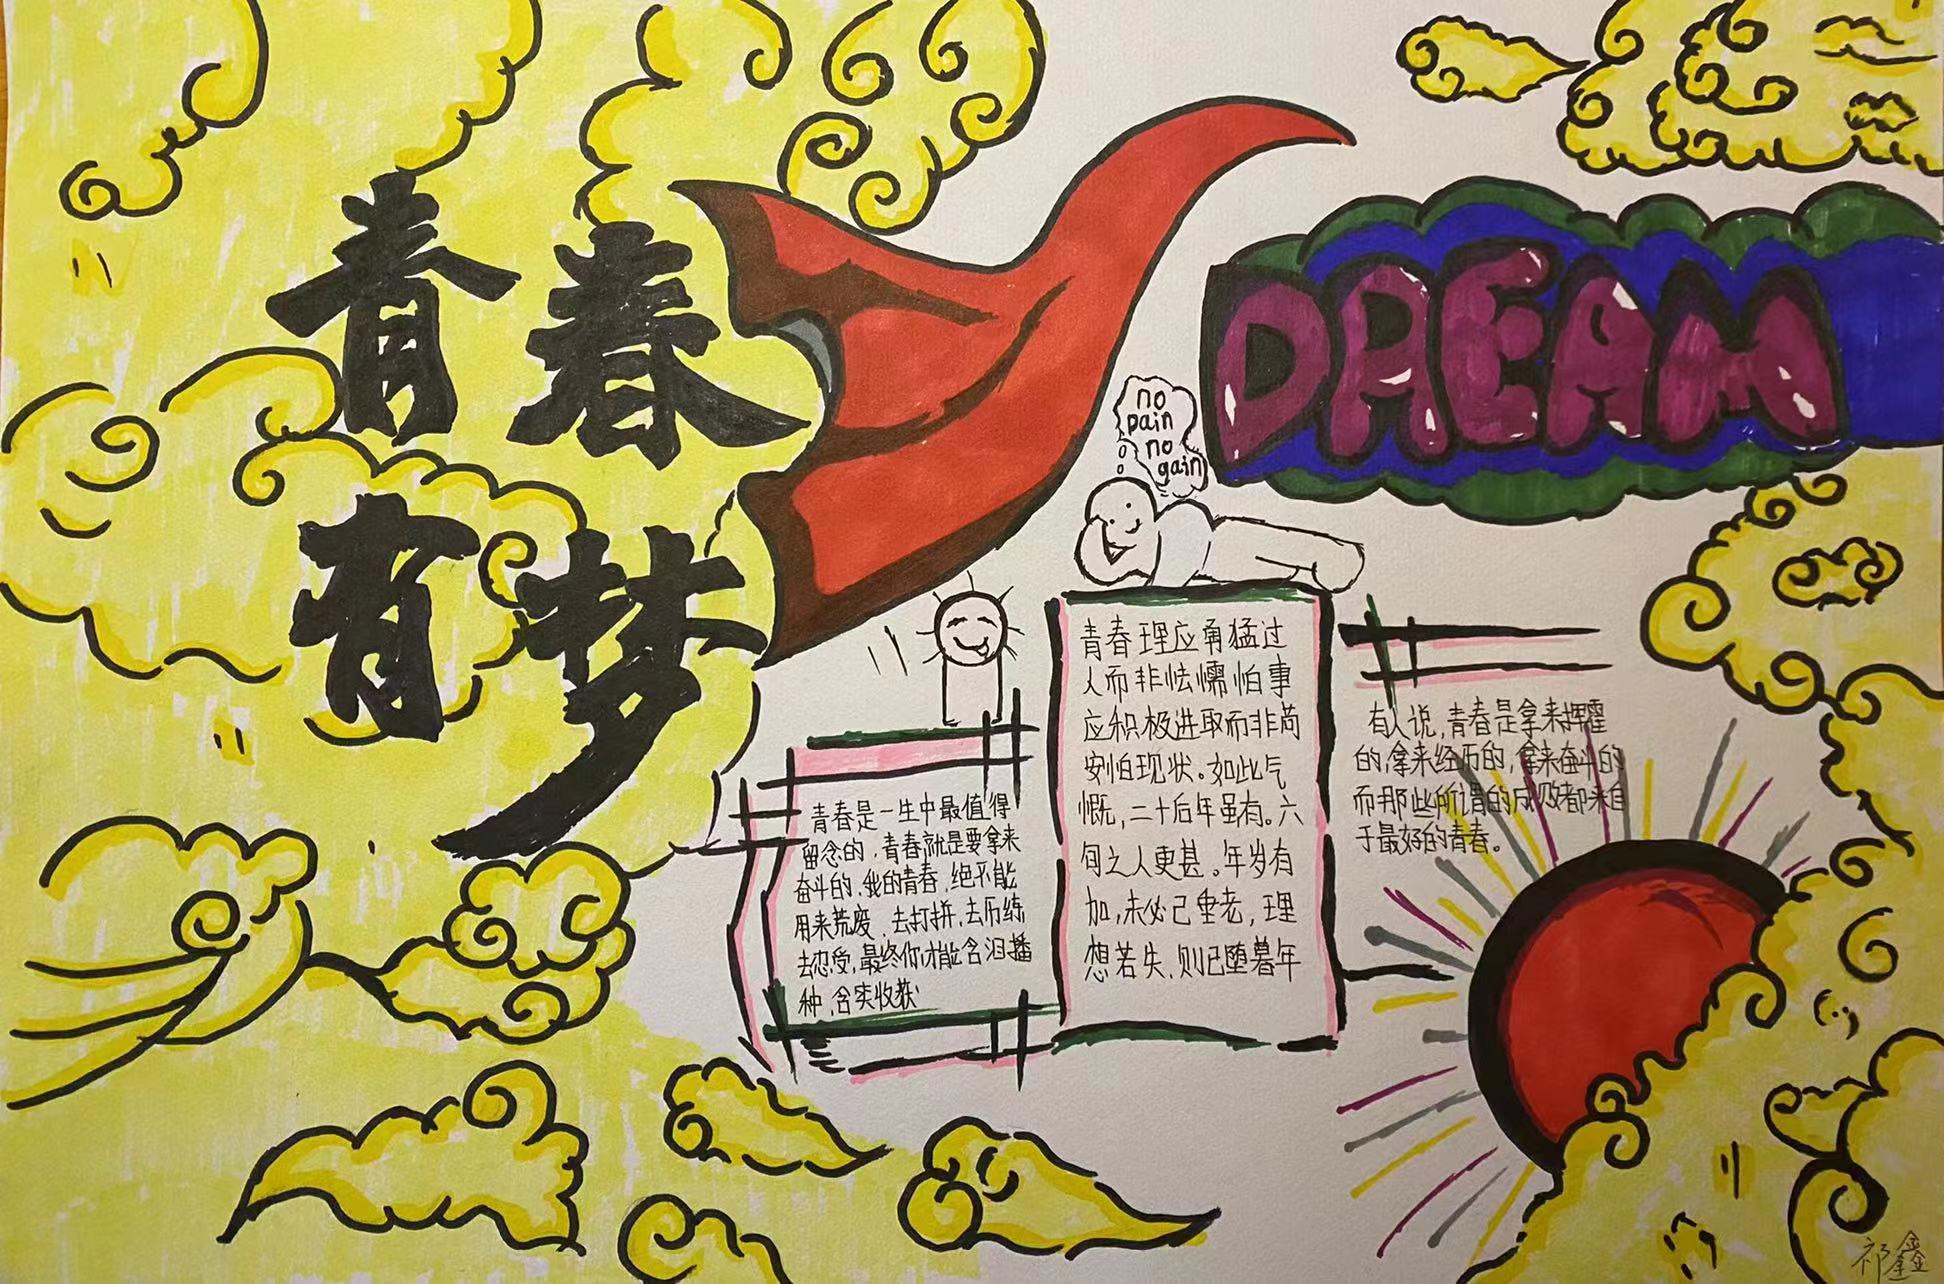 青春
有梦
DREAM
no
pain
no
gain
青春是一生中最值得
留念的，青春就是要拿来
奋斗的，我的青春，绝不能
用来荒废，去打拼，去历练
去忍受，最终你才能含泪播
种，含笑收获
青春理应勇猛过
人而非怯懦怕事
应积极进取而非苟
安怕现状。如此气
慨，二十后年虽有。六
旬之人更甚。年岁有
加，未必已垂老，理
想若失，则已堕暮年
有人说，青春是拿来挥霍
的，拿来经历的，拿来奋斗的
而那些所谓的成败都来自
于最好的青春。
祁鑫